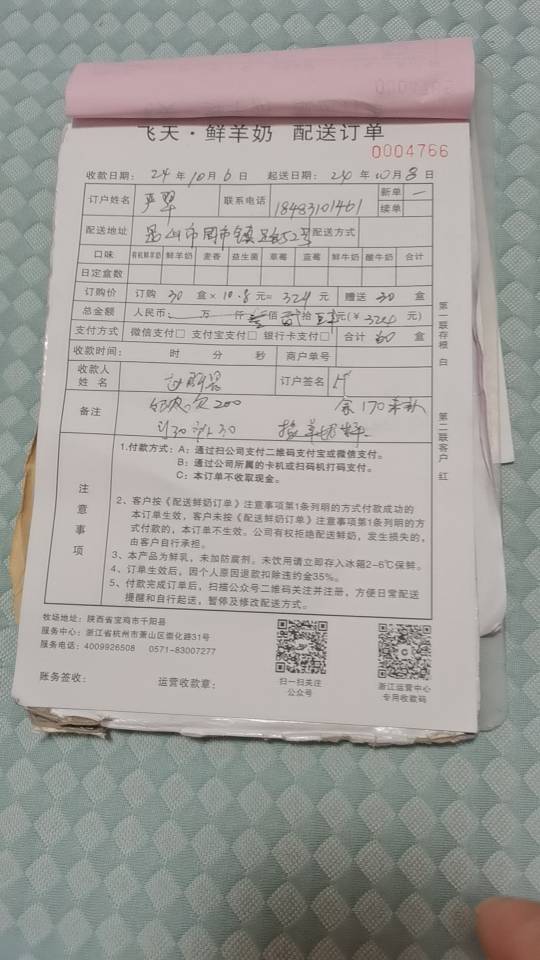 飞天·鲜羊奶 配送订单
0004766
收款日期: 24 年 10 月 6 日 起送日期: 24 年 10 月 8 日
订户姓名 联系电话 18483101461 新单 续单
配送地址 昆山市周市镇 52号 配送方式
口味 有机鲜羊奶 鲜羊奶 麦香 益生菌 草莓 蓝莓 鲜牛奶 酸牛奶 合计
日定盒数
订购价 订购 30 盒 × 10.8 元= 324 元 赠送 30 盒
总金额 人民币: 万 仟 叁 佰 贰 拾 元(¥ 324 元)
支付方式 微信支付□ 支付宝支付□ 银行卡支付□ 合计 60 盒
收款时间: 时 分 秒 商户单号
收款人姓名 订户签名
备注 200 余170
订30送30 羊奶粉
第一联存根 白 第二联客户 红
注意事项
1.付款方式: A: 通过扫公司支付二维码支付宝或微信支付。
B: 通过公司所属的卡机或扫码机打码支付。
C: 本订单不收取现金。
2、客户按《配送鲜奶订单》注意事项第1条列明的方式付款成功的
本订单生效,客户未按《配送鲜奶订单》注意事项第1条列明的方
式付款的,本订单不生效。公司有权拒绝配送鲜奶,发生损失的,
由客户自行承担。
3、本产品为鲜乳,未加防腐剂。未饮用请立即存入冰箱2-6℃保鲜。
4、订单生效后,因个人原因退款扣除违约金35%。
5、付款完成订单后,扫描公众号二维码关注并注册,方便日常配送
提醒和自行起送,暂停及修改配送方式。
牧场地址: 陕西省宝鸡市千阳县
服务中心: 浙江省杭州市萧山区崇化路31号
服务电话: 4009926508 0571-83007277
账务签收: 运营收款章:
扫一扫关注
公众号
浙江运营中心
专用收款码